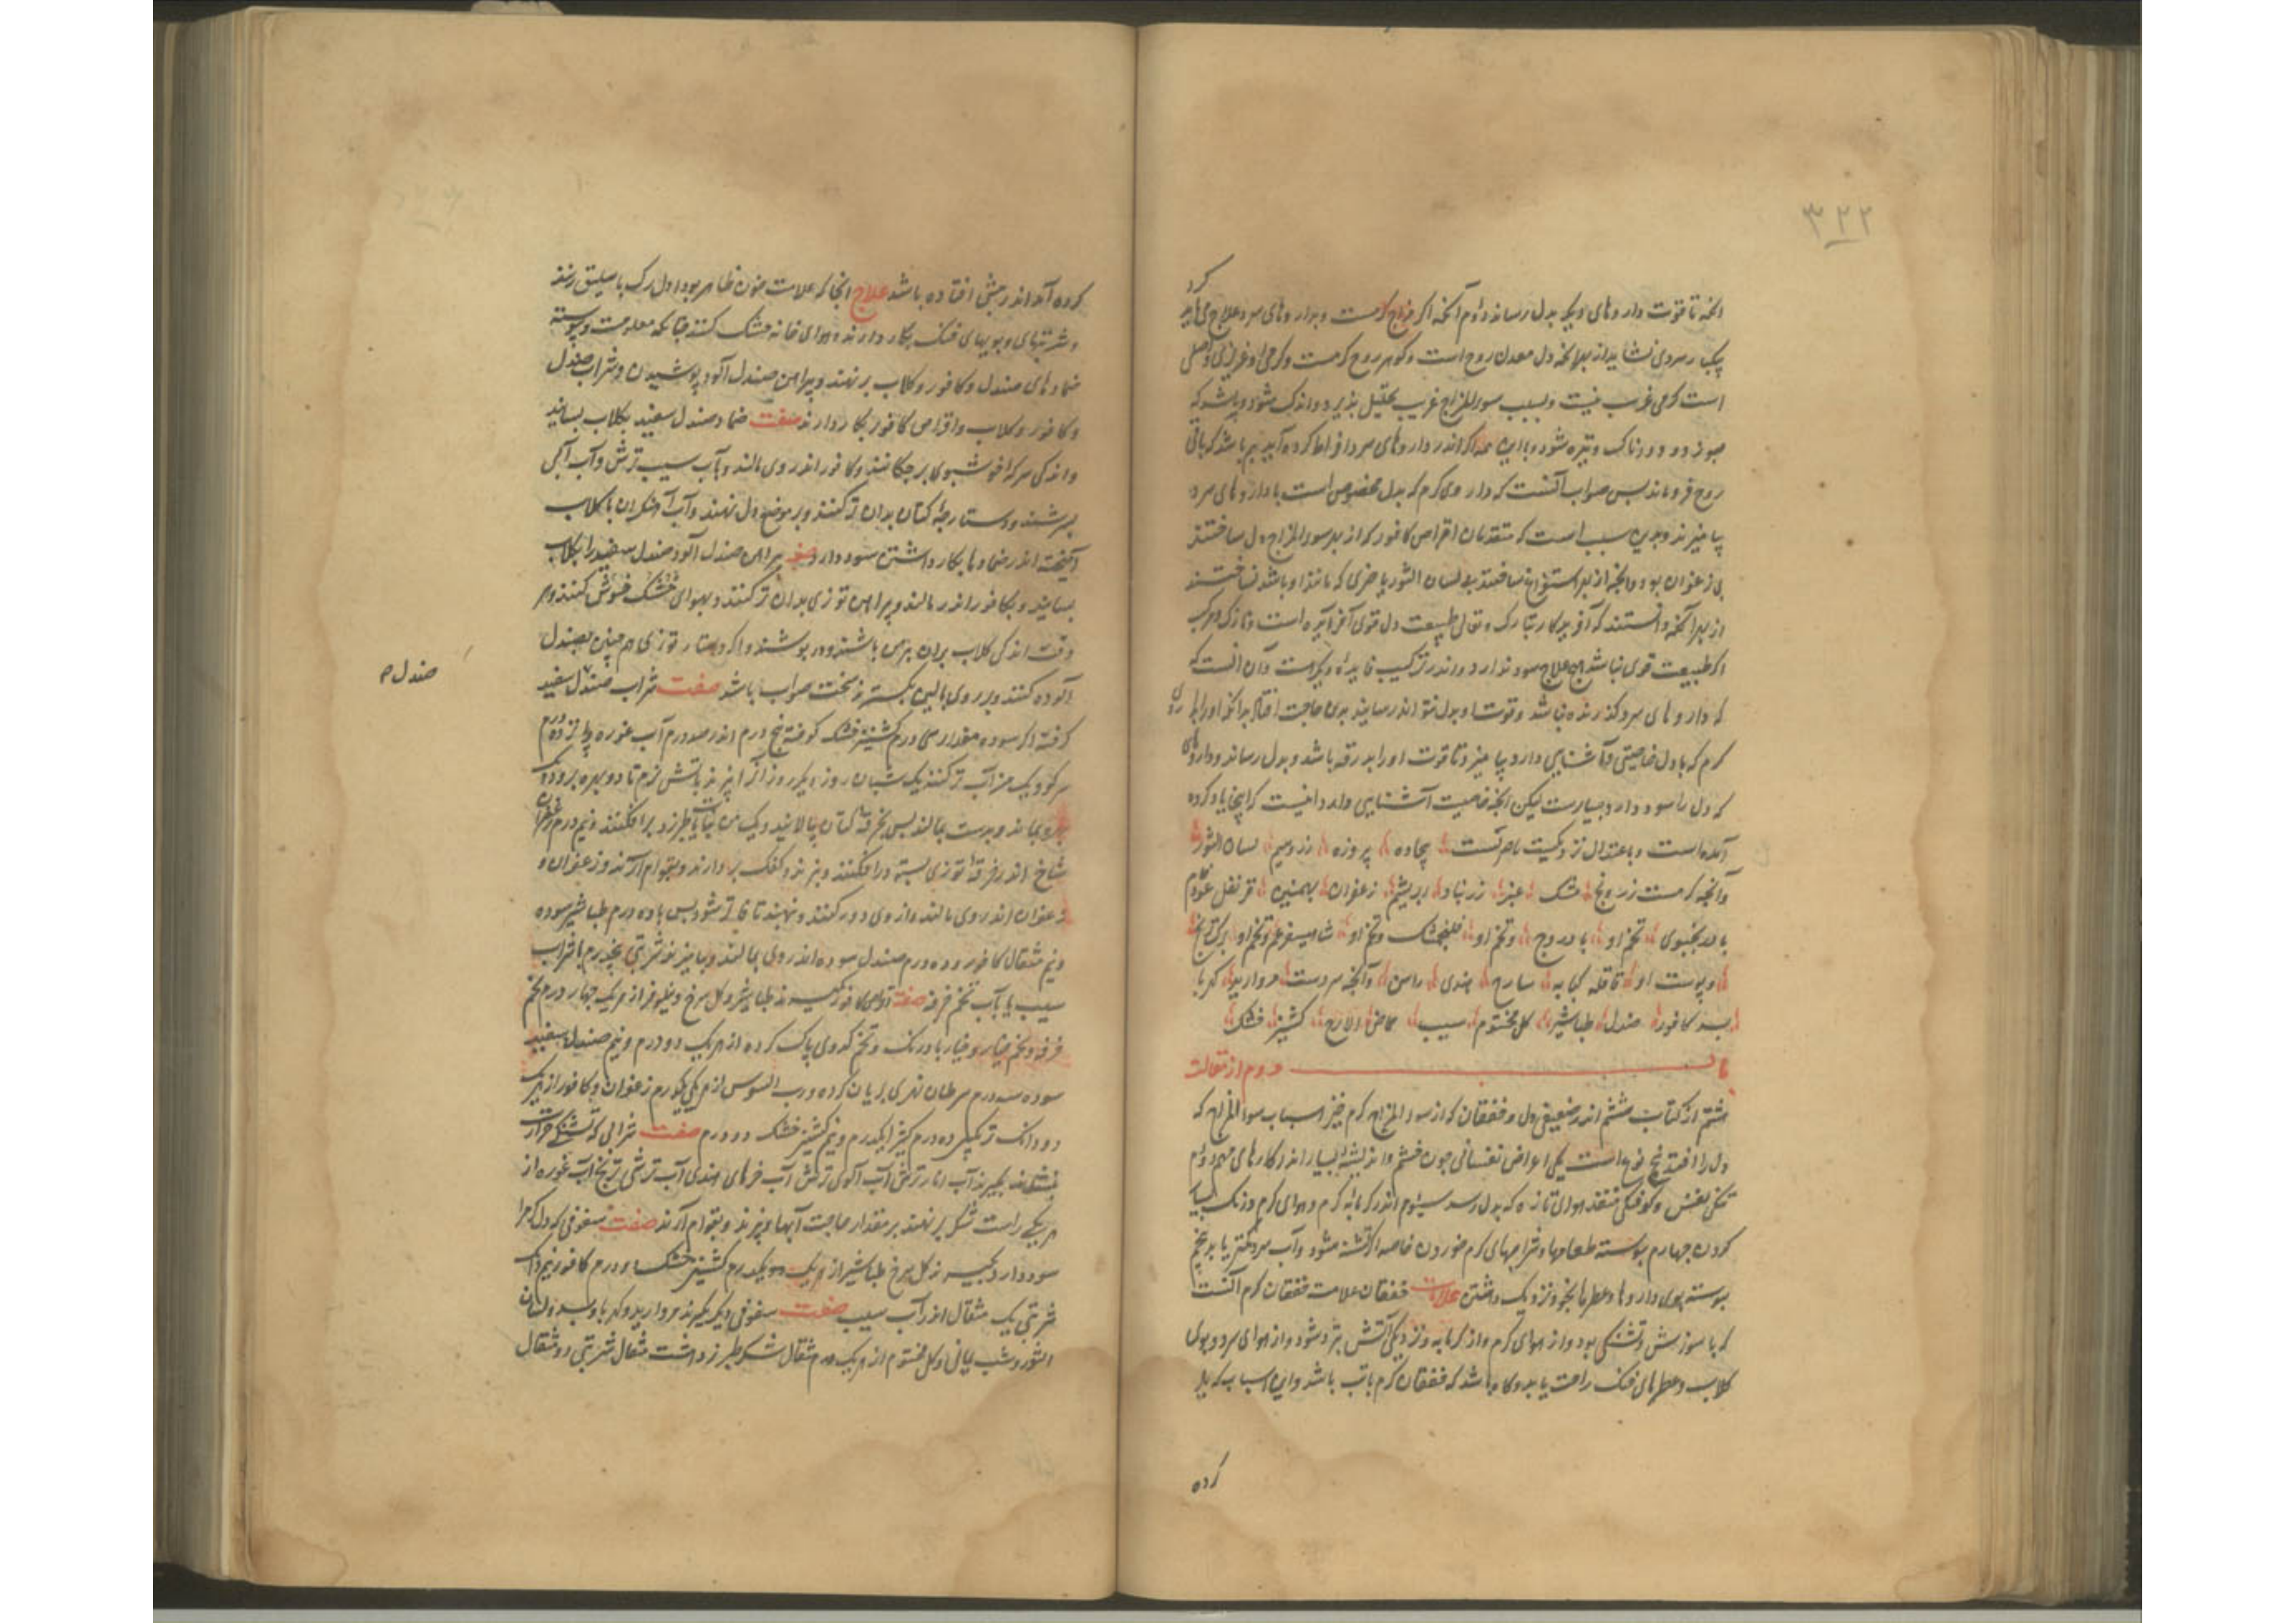 ۳۲۲
آنخه تا قوت داروهای دیگر بدل رساند دوم آنکه اکر مزاج کرمست و بداروهای سرد علاج می باید کرد
یکبارسردی نشاید از بهر انخه دل معدن روح است و کوهر روح کرمست و کرمی او غریزی و اصلی
است کرمی غریب نیست و بسبب سوء المزاج غریب تحلیل پذیرد و اندک شود و باشد که
چون دود دودناک و تیره شود و با این همه اکر اندر داروهای سرد افراط کرده آید بیم باشد که باقی
روح فرو ماند پس صواب آنست که داروی کرم که بدل مخصوص است با داروهای سرد
بیامیزند و بدین سبب است که متقدمان اقراص کافور که از بهر سوء المزاج دل ساختند
بی زعفران نبود و آنچه از بهر استفراغ ساختند بی لسان الثور یا چیزی که مانند او باشد نساختند
از بهر آنکه دانستند که آفریدکار تبارک و تعالی طبیعت دل قوی آفریده است و نازک و هرکه
اکر طبیعت قوی نباشد هیچ علاج سود ندارد و اندر ترکیب فایده دیکرست و آن انست که
که داروهای سرد کذرنده نباشد و قوت او بدل نتواند رسانید بدین حاجت افتاد بدانکه او را با داروی
کرم که با دل خاصیتی و آشنایی دارد بیامیزند تا قوت او را بدرقه باشد و بدل رساند و داروهای
که دل را سود دارد بسیارست لیکن آنچه خاصیت آشنایی دارد اینست که اینجا یاد کرده
آمده است و باعتدال نزدیکست یاقوتست بیجاده پیروزه زر و سیم لسان الثور
وآنچه کرمست زرونج مشک عنبر زرنباد ابریشم زعفران بهمنین قرنفل عود خام
بادرنجبوی تخم او بادروج وتخم او فلنجمشک وتخم او شاهسفرم وتخم او برک ترنج
وپوست او قاقله کبابه ساذج هندی راسن وآنچه سردست مروارید کهربا
بسد کافور صندل طباشیر کل مختوم سیب حماض الاترج کشنیز خشک
باب دوم از مقالت
هشتم از کتاب ششم اندر ضعیفی دل و خفقان که از سوء المزاج کرم خیزد اسباب سوء المزاج که
دل را افتد پنج نوع است یکی اعراض نفسانی چون خشم و اندیشهٔ بسیار اندر کارهای مهم دوم
تنکی نفس و کوفتکی منفذ هوای تازه که بدل رسد سیوم اندر کرمابهٔ کرم و هوای کرم درنک بسیار
کردن چهارم پیوسته طعامها و شرابهای کرم خوردن خاصه اکر تشنه شود و آب سرد کمتر یابد پنجم
پیوسته بوی داروها و عطرها بخود نزدیک داشتن علامات خفقان علامت خفقان کرم آنست
که با سوزش و تشنکی بود و از هوای کرم و از کرمابه و نزدیکی آتش بتر شود و از هوای سرد و بوی
کلاب و عطرهای خنک راحت یابد و کاه باشد که خفقان کرم با تب باشد و این اسباب که یاد
کرده
کرده آمد اندر پیش افتاده باشد علاج انجا که علامت خون ظاهر بود اول رک باسلیق زنند
و شربتهای و بویهای خنک بکار دارند و هوای خانه خنک کنند چنانکه معلومست و پیوسته
ضمادهای صندل و کافور و کلاب بر نهند و پیراهن صندل آلود پوشیدن و شراب صندل
و کافور و کلاب و اقراص کافور بکار دارند صفت ضماد صندل سفید بکلاب بسایند
و اندکی سرکه خوشبوی برچکانند و کافور اندر وی مالند و بآب سیب ترش و آب آبی
بسرشند و دستارچهٔ کتان بدان تر کنند و بر موضع دل نهند و آب آهنکران با کلاب
آمیخته اندر ضمادها بکار داشتن سود دارد صفت پیراهن صندل آلود صندل سفید را بکلاب
بسایند و کافور اندر مالند و پیراهن توزی بدان تر کنند و بهوای خنک خشک کنند و هر
وقت اندکی کلاب بران همی پاشند و در پوشند و اکر دستار توزی هم چنین بصندل
آلوده کنند و بر روی بالین بکسترند سخت صواب باشد صفت شراب صندل سفید
صندل ح
کرفته اکر سوده مقدار سی درم کشنیز خشک کوفته پنج درم اندر صد درم آب غوره
سرکه و یک من آب تر کنند یک شبان روز دیکر روز از آن بپزند بآتش نرم تا دو بهره برود و یک
بهره بماند و بدست بمالند پس بخرقهٔ کتان بپالایند و یک من نبات یا طبرزد برافکنند و نیم درم زعفران
شاخ اندر خرقهٔ توزی بسته درافکنند و بپزند و کفک بردارند و بقوام آرند و زعفران
زعفران اندر وی مالند و از وی دور کنند و نهند تا فاتر شود پس ده درم طباشیر سوده
و نیم مثقال کافور و ده درم صندل سوده اندر وی بمالند و بیامیزند شربتی پنج درم با شراب
سیب یا بآب تخم خرفه صفت اقراص کافور بکیرند طباشیر و کل سرخ و نیلوفر از هر یک چهار درم تخم
خرفه و تخم خیار و خیار بادرنک و تخم کدوی پاک کرده از هر یک دو درم و نیم صندل سفید
سوده سه درم سرطان نهری بریان کرده و رب السوس از هر یکی یکدرم زعفران و کافور از هر یک
دو دانک ترنکبین ده درم کتیرا یکدرم و نیم کشنیز خشک دو درم صفت شرابی که تشنکی و حرارت
بنشاند بکیرند آب انار ترش آب آلوی ترش آب خرمای هندی آب ترشی ترنج آب غوره از
هر یکی راست شکر بر نهند بر مقدار حاجت آبها و بپزند و بقوام آرند صفت سفوفی که دل کرم را
سود دارد بکیرند کل سرخ طباشیر از هر یک دو یکدرم کشنیز خشک درم کافور نیم دانک
شربتی یک مثقال اندر آب سیب صفت سفوفی دیکر بکیرند مروارید و کهربا و بسد و لسان
الثور و شب یمانی و کل مختوم از هر یک درم مثقال شکر طبرزد هشت مثقال شربتی دو مثقال